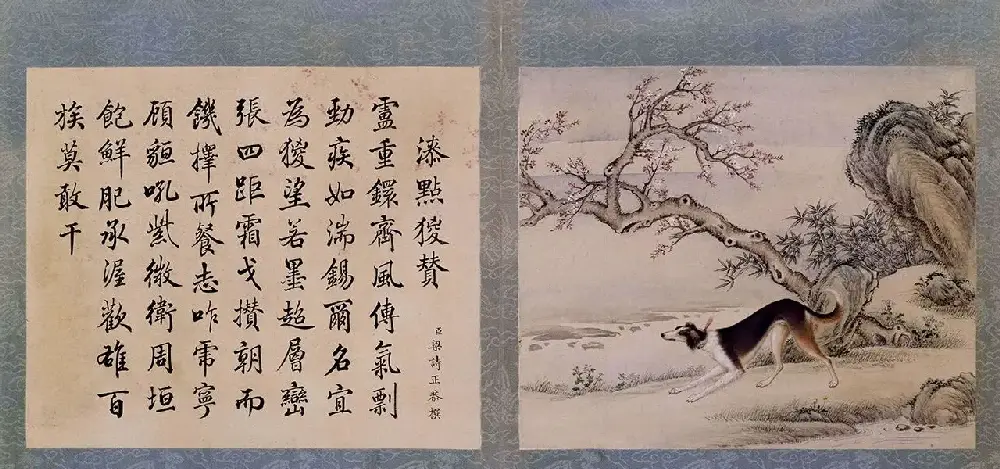 漆點猣贊
臣梁詩正恭撰
盧重鐶齊風傳氣剽
勁疾如湍錫爾名宜
為猣望若墨超層巒
張四距霜戈攢朝而
饑擇所餐志咋虎寧
顧貆吼紫微衛周垣
飽鮮肥承渥歡雄百
族莫敢干